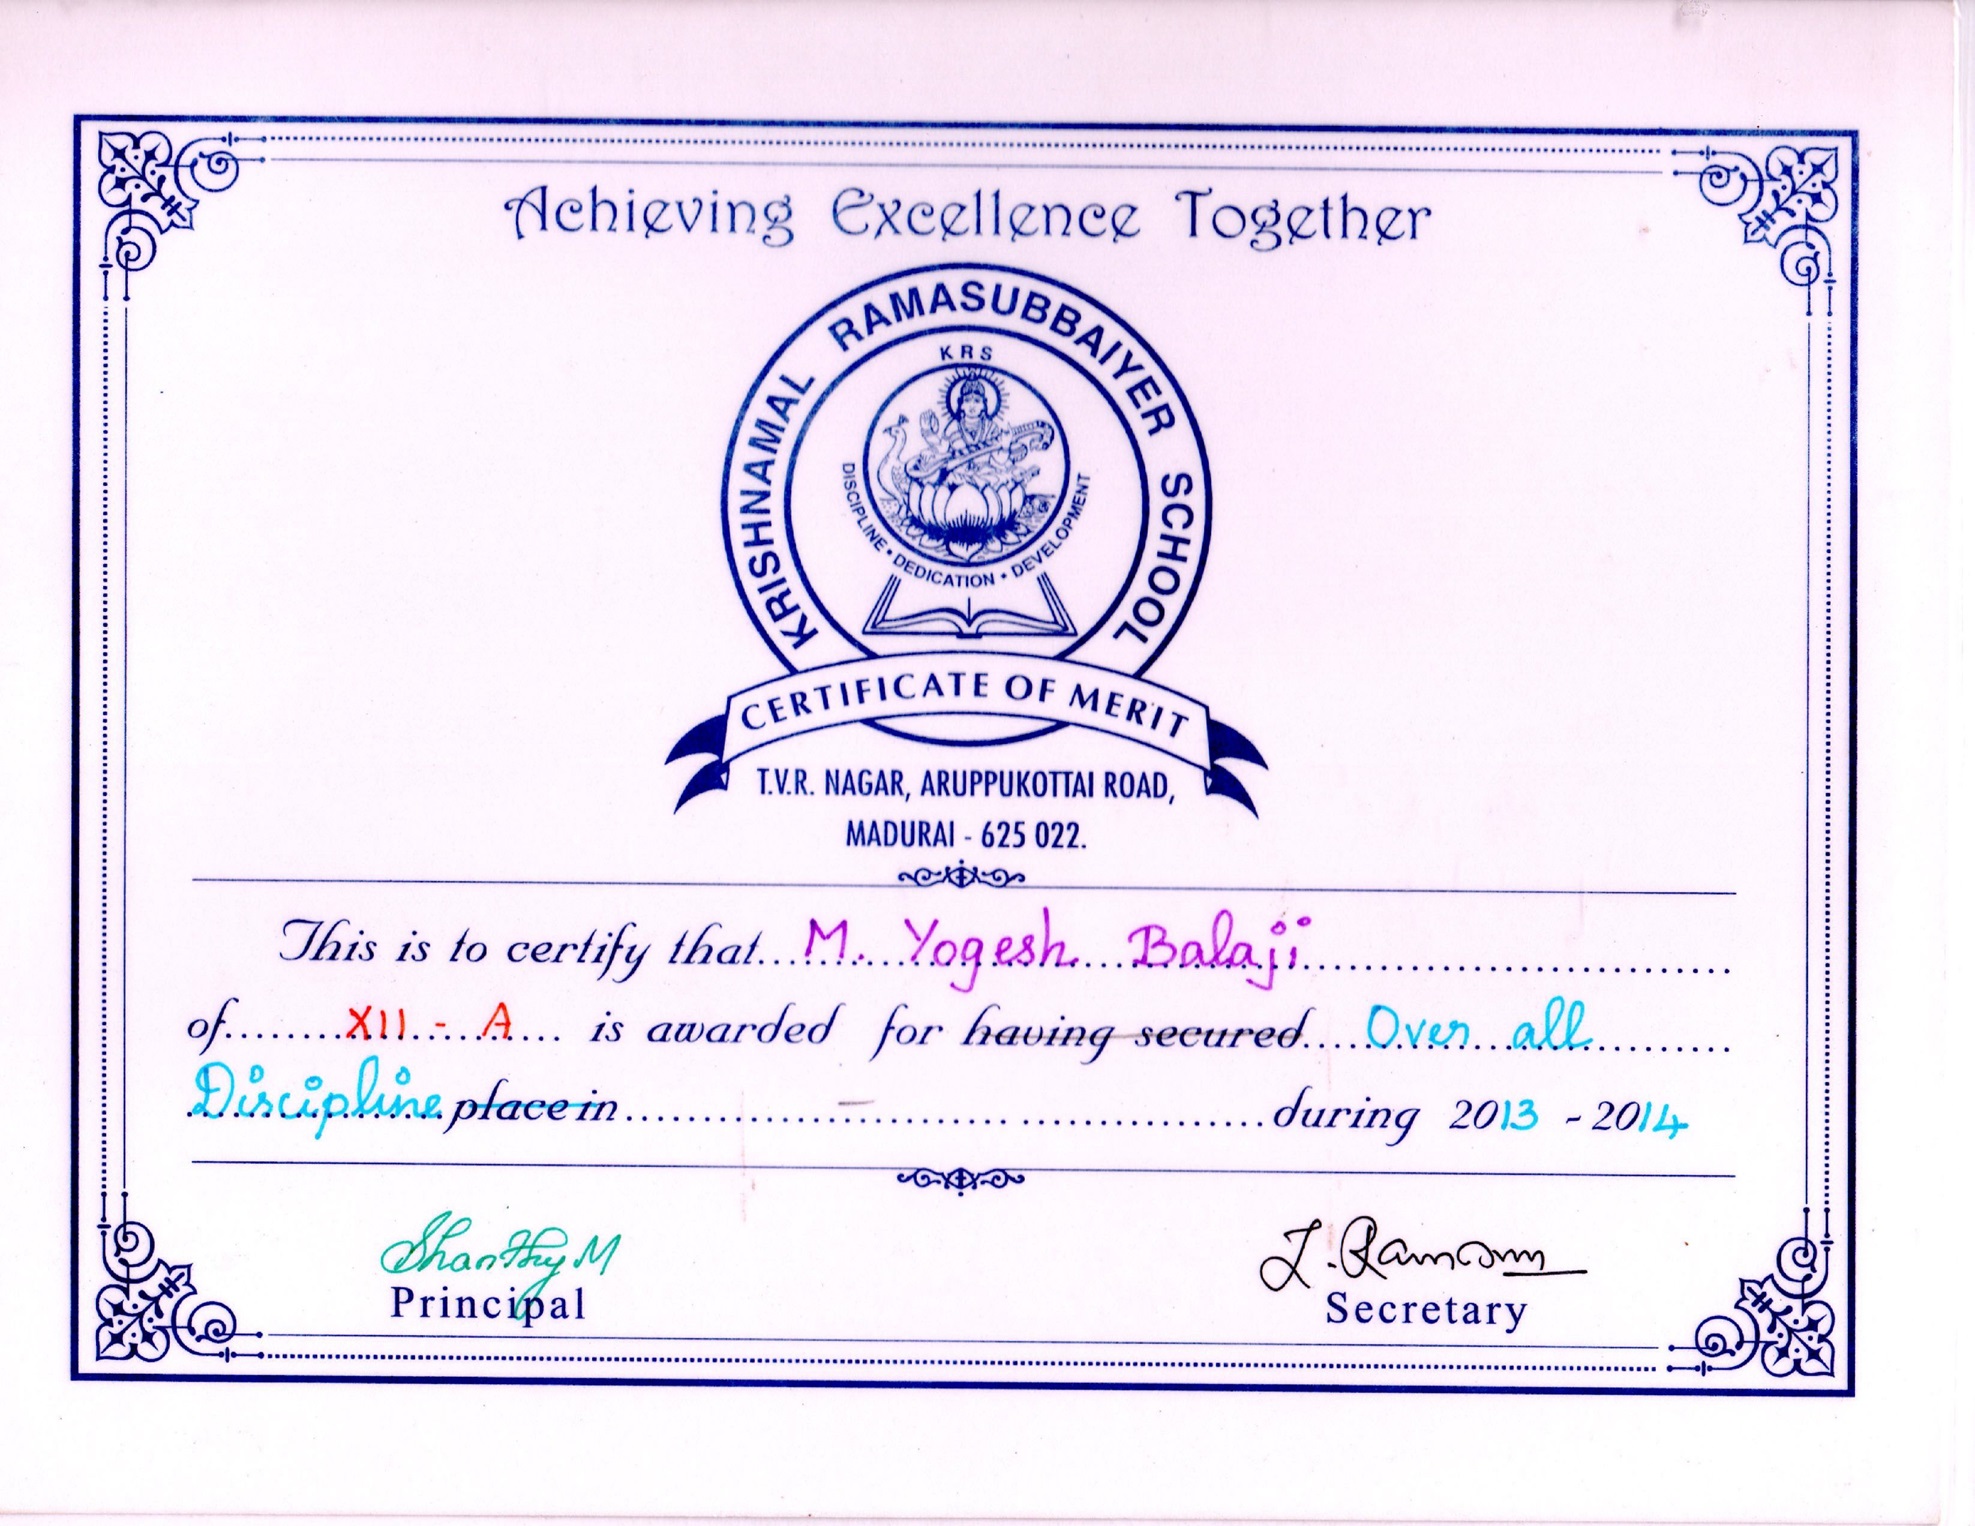 Achieving Excellence Together
KRISHNAMAL RAMASUBBAIYER SCHOOL
KRS
DISCIPLINE • DEDICATION • DEVELOPMENT
CERTIFICATE OF MERIT
T.V.R. NAGAR, ARUPPUKOTTAI ROAD,
MADURAI - 625 022.
This is to certify that M. Yogesh Balaji
of XII - A is awarded for having secured Over all
Discipline place in - during 2013 - 2014
Shanthy M
Principal
Secretary